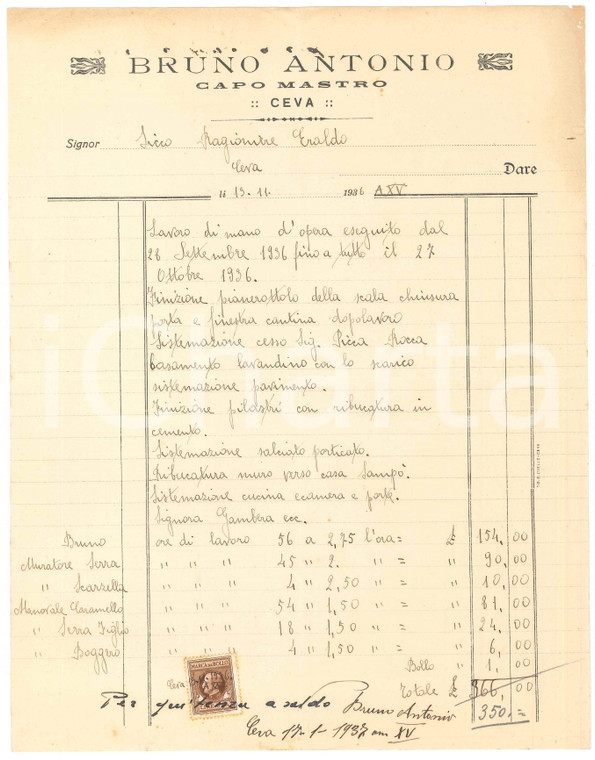 BRUNO ANTONIO
CAPO MASTRO
:: CEVA ::
Signor Sicco Ragioniere Eraldo
Ceva
Dare
li 13.11. 1936 A XV
Lavoro di mano d'opera eseguito dal
28 Settembre 1936 fino a tutto il 27
Ottobre 1936.
Finizione pianerottolo della scala chiusura
porta e finestra cantina dopolavoro
Sistemazione cesso Sig. Picca Rocca
basamento lavandino con lo scarico
sistemazione pavimento.
Finizione pilastri con ribucatura in
cemento.
Sistemazione salciato porticato.
Ribucatura muro verso casa Sampò.
Sistemazione cucina e camera e porte.
Signora Gambera ecc.
Bruno ore di lavoro 56 a 2,75 l'ora = £ 154,00
Muratore Serra " " " 45 " 2. " " = " 90,00
" Scarzella " " " 4 " 2,50 " = " 10,00
Manovale Caramello " " " 54 " 1,50 " = " 81,00
" Serra Figlio " " " 18 " 1,50 " = " 24,00
" Boggero " " " 4 " 1,50 " = " 6,00
Bollo " 1,00
MARCA DA BOLLO
Ceva
Totale £ 366,00
Per quitenza a saldo Bruno Antonio 350,=
Ceva 17-1-1937 XV
iCharta